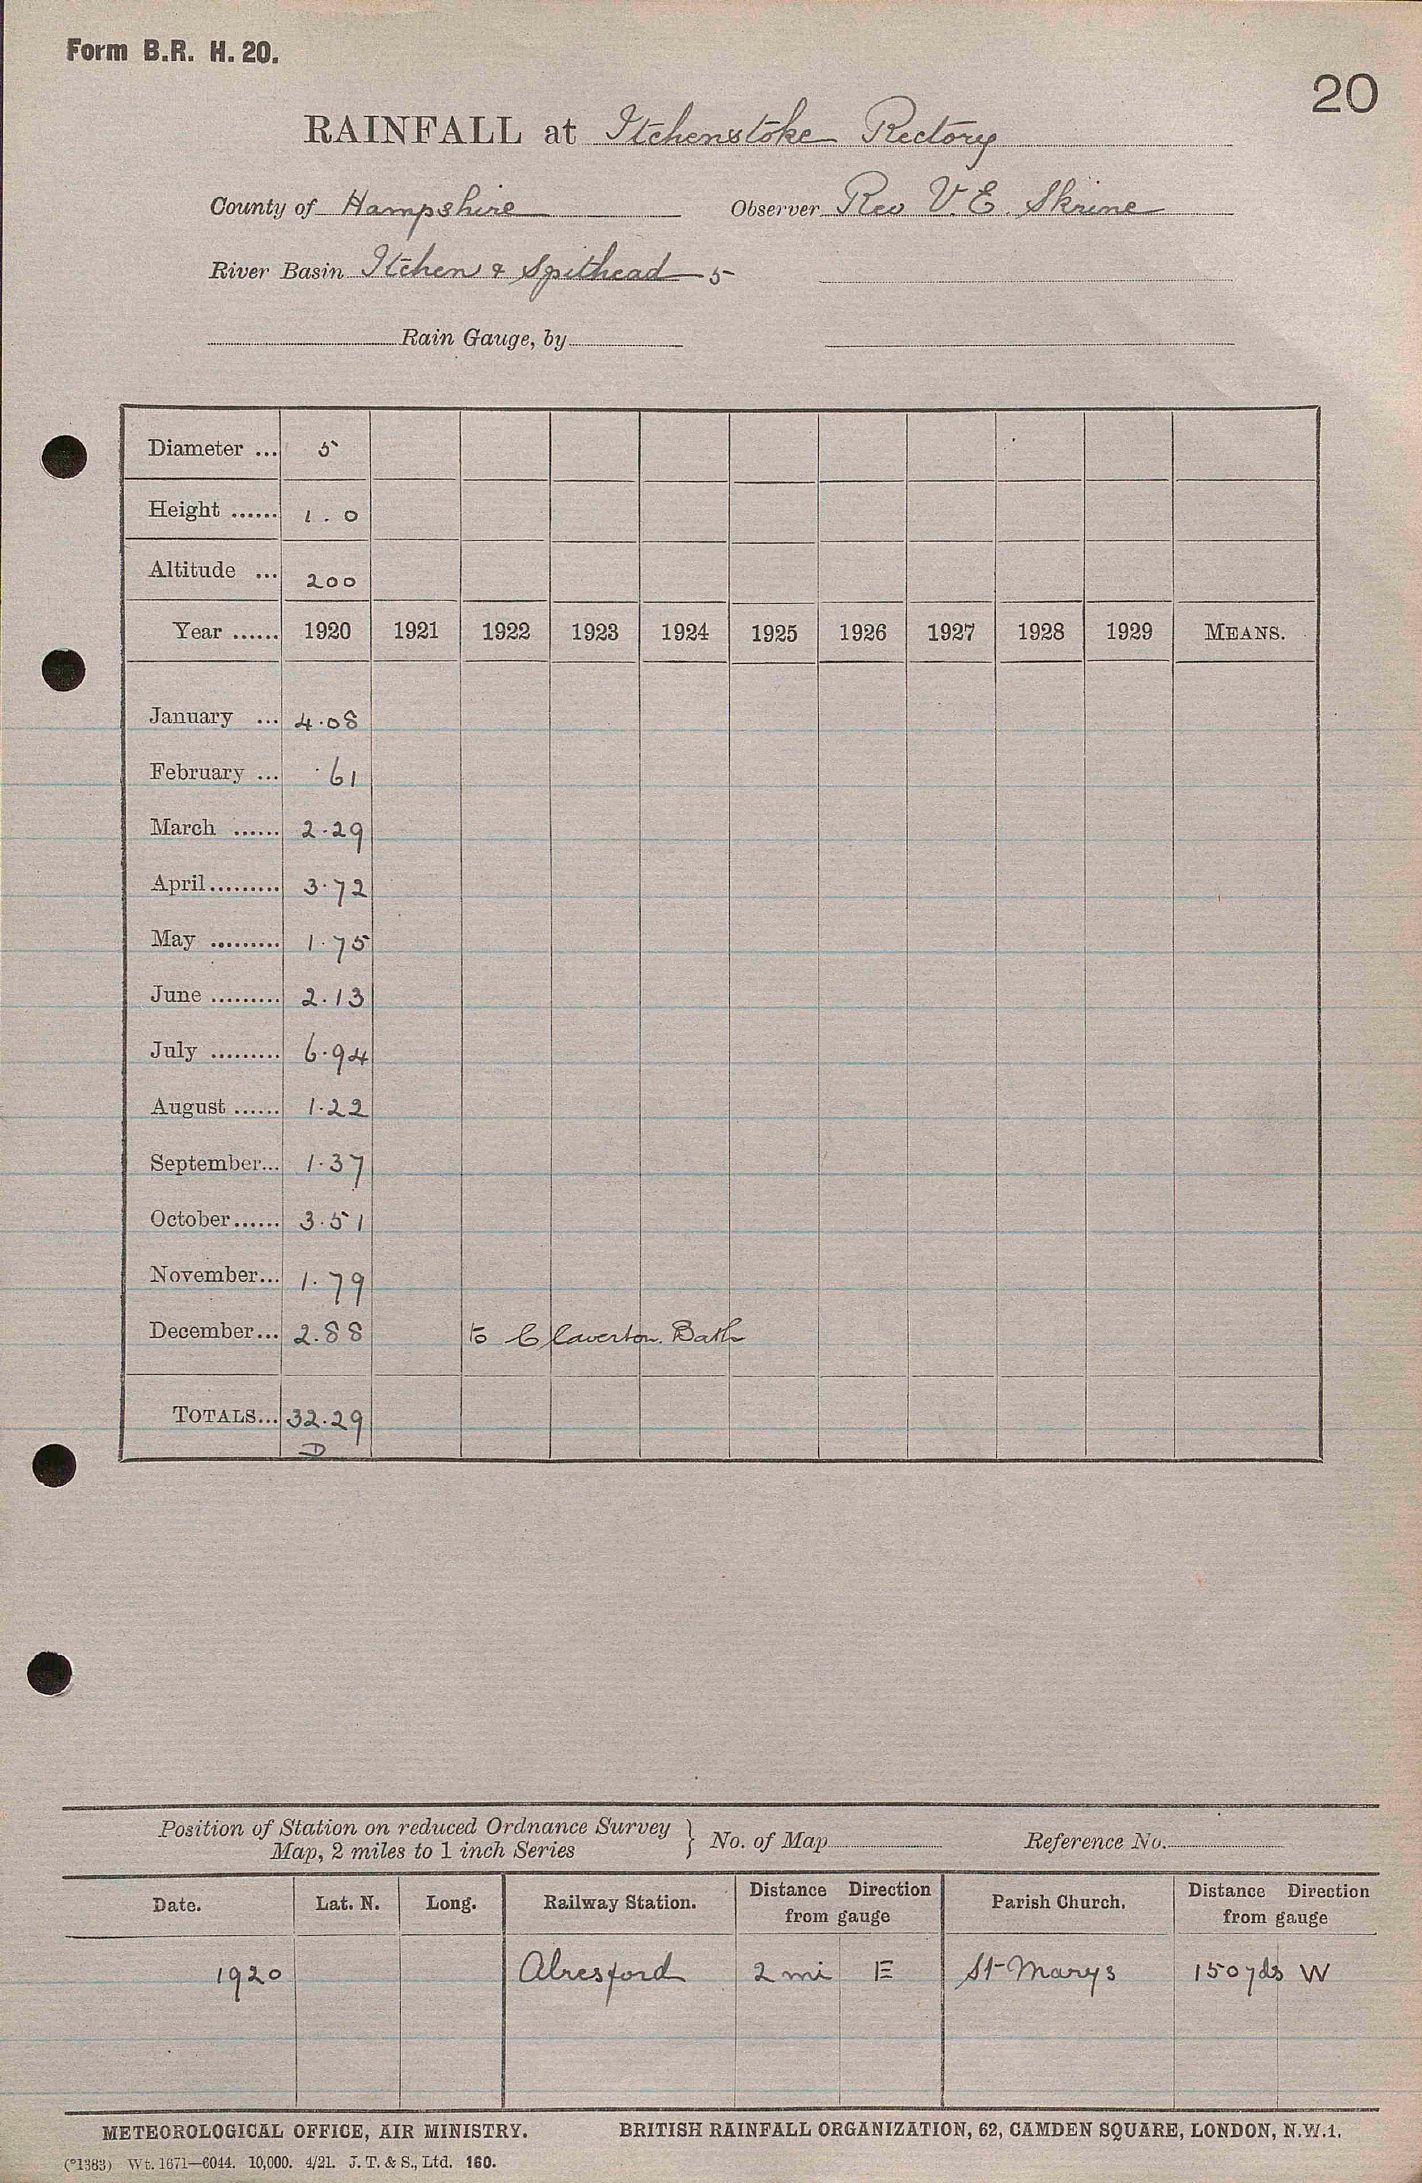 Form B.R. H. 20.
20
RAINFALL at Itchenstoke Rectory
County of Hampshire Observer Rev V. E. Skrine
River Basin Itchen & Spithead 5
Rain Gauge, by
Diameter ... 5
Height ...... 1.0
Altitude ... 200
Year ...... 1920 1921 1922 1923 1924 1925 1926 1927 1928 1929 MEANS.
January ... 4.08
February ... .61
March ...... 2.29
April......... 3.72
May ......... 1.75
June ......... 2.13
July ......... 6.94
August ...... 1.22
September... 1.37
October...... 3.51
November... 1.79
December... 2.88 to Claverton. Bath
TOTALS... 32.29
D
Position of Station on reduced Ordnance Survey
Map, 2 miles to 1 inch Series } No. of Map Reference No.
Date. Lat. N. Long. Railway Station. Distance Direction from gauge Parish Church. Distance Direction from gauge
1920 Alresford 2 mi E St Marys 150 yds W
METEOROLOGICAL OFFICE, AIR MINISTRY. BRITISH RAINFALL ORGANIZATION, 62, CAMDEN SQUARE, LONDON, N.W.1.
(*1383) Wt. 1671—6044. 10,000. 4/21. J. T. & S., Ltd. 160.